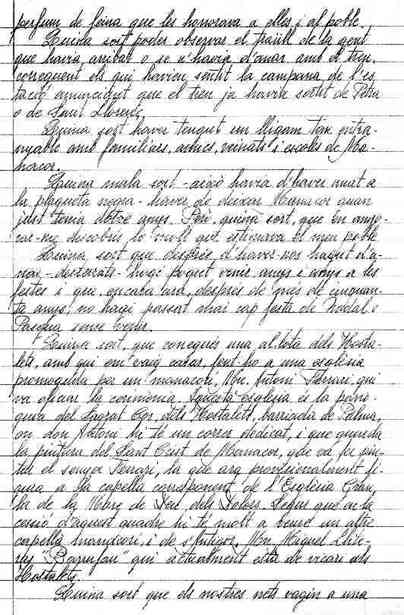 perfum de feina que les honorava a elles i al poble.
Quina sort poder observar el tràfull de la gent
que havia arribat o se n'havia d'anar amb el tren,
corregueut els qui havien sentit la campana de l'es-
tació anunciant que el tren ja havia sortit de Petra
o de Sant Llorenç.
Quina sort haver tengut un lligam tan entra-
nyable amb familiars, amics, veinats i escoles de Ma-
nacor.
Quina mala sort -això havia d'haver anat a
la plagueta negra- haver de deixar Manacor quan
just tenia dotze anys. Però, quina sort, que en anys-
rar-ne descobrís lo molt que estimava el meu poble.
Quina sort que després d'haver-nos hagut d'a-
nar -desterrats- hagi pogut venir anys i anys a les
festes i que encara ara, després de més de cinquan-
ta anys, no hagi passat mai cap festa de Nadal o
Pasqua sense venir.
Quina sort, que conegués una al·lota dels Hosta-
lets, amb qui em vaig casar, fent-ho a una església
promoguda per un manacorí, Mn. Antoni Ferrari, qui
va oficiar la cerimònia. Aquesta església és la parrò-
quia del Sagrat Cor, dels Hostalets, barriada de Palma,
on don Antoni hi té un carrer dedicat, i que guarda
la pintura del Sant Crist de Manacor, que va fer pin-
tar el senyor Ferrari, la que ara provisionalment fi-
gura a la capella corresponent de l'Església Gran,
la de la Mare de Déu dels Dolors. Segur que en la
cessió d'aquest quadre hi té molt a veure un altre
capellà manacorí, i de s'Antigor, Mn. Miquel
"Parrufau" qui actualment està de vicari als
Hostalets.
Quina sort que els nostres nets vagin a una